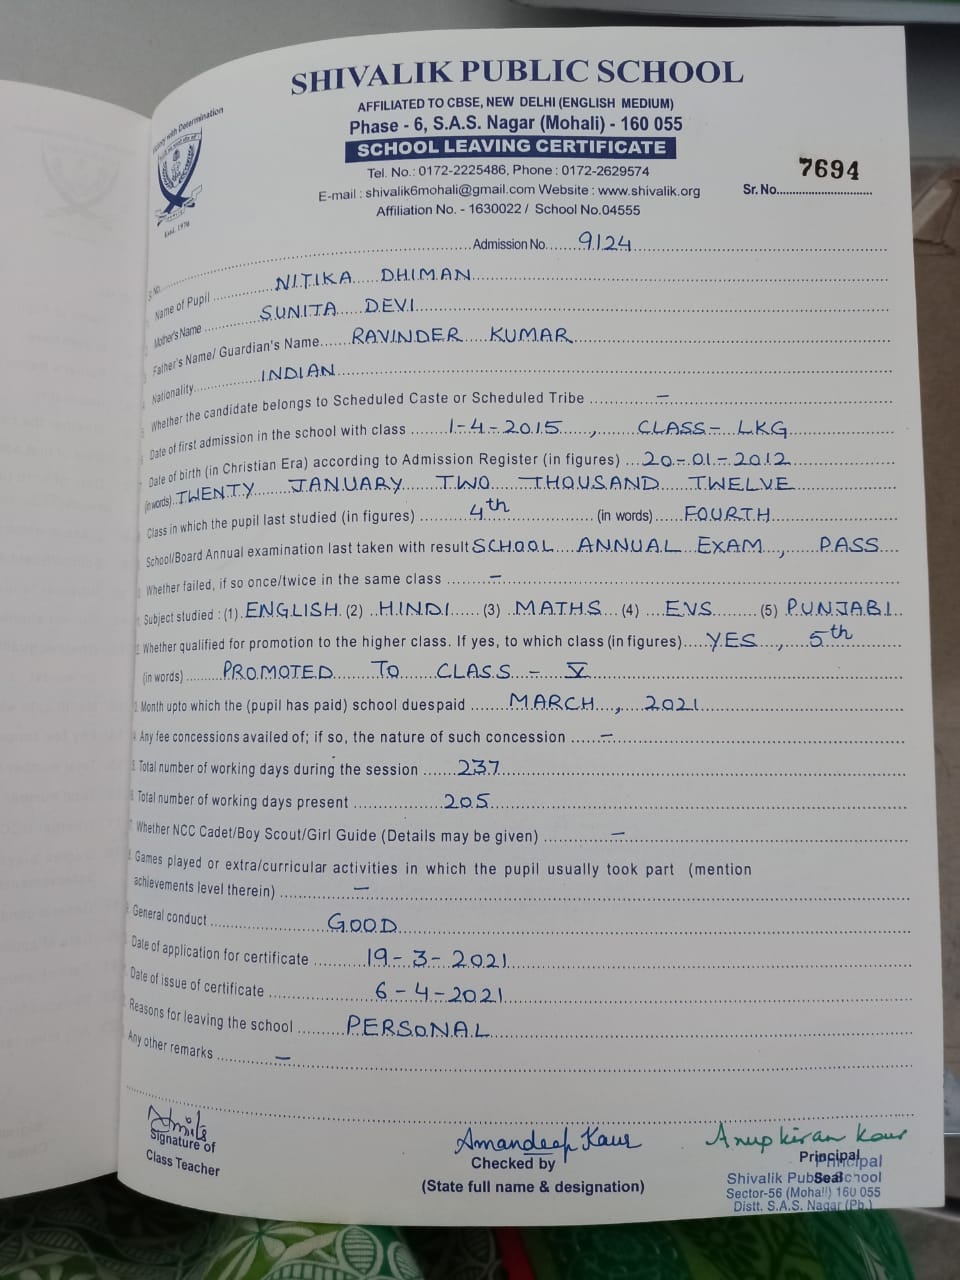 SHIVALIK PUBLIC SCHOOL
AFFILIATED TO CBSE, NEW DELHI (ENGLISH MEDIUM)
Phase - 6, S.A.S. Nagar (Mohali) - 160 055
SCHOOL LEAVING CERTIFICATE
Tel. No.: 0172-2225486, Phone : 0172-2629574
E-mail : shivalik6mohali@gmail.com Website : www.shivalik.org
Affiliation No. - 1630022 / School No.04555
with Determination
Estd. 1976
7694
Sr. No.
Admission No. 9124
Sr No.
Name of Pupil NITIKA DHIMAN
Mother's Name SUNITA DEVI
Father's Name/ Guardian's Name RAVINDER KUMAR
Nationality INDIAN
Whether the candidate belongs to Scheduled Caste or Scheduled Tribe –
Date of first admission in the school with class 1-4-2015, CLASS- LKG
Date of birth (in Christian Era) according to Admission Register (in figures) 20-01-2012
(in words) TWENTY JANUARY TWO THOUSAND TWELVE
Class in which the pupil last studied (in figures) 4th (in words) FOURTH
School/Board Annual examination last taken with result SCHOOL ANNUAL EXAM, PASS
Whether failed, if so once/twice in the same class –
Subject studied : (1) ENGLISH (2) HINDI (3) MATHS (4) EVS (5) PUNJABI
Whether qualified for promotion to the higher class. If yes, to which class (in figures) YES, 5th
(in words) PROMOTED TO CLASS - V
Month upto which the (pupil has paid) school duespaid MARCH, 2021
Any fee concessions availed of; if so, the nature of such concession –
Total number of working days during the session 237
Total number of working days present 205
Whether NCC Cadet/Boy Scout/Girl Guide (Details may be given) –
Games played or extra/curricular activities in which the pupil usually took part (mention
achievements level therein) –
General conduct GOOD
Date of application for certificate 19-3-2021
Date of issue of certificate 6-4-2021
Reasons for leaving the school PERSONAL
Any other remarks –
Signature of
Class Teacher
Amandeep Kaur
Checked by
(State full name & designation)
Anupkiran Kaur
Principal
Seal
Principal
Shivalik Public School
Sector-56 (Mohali) 160 055
Distt. S.A.S. Nagar (Pb.)